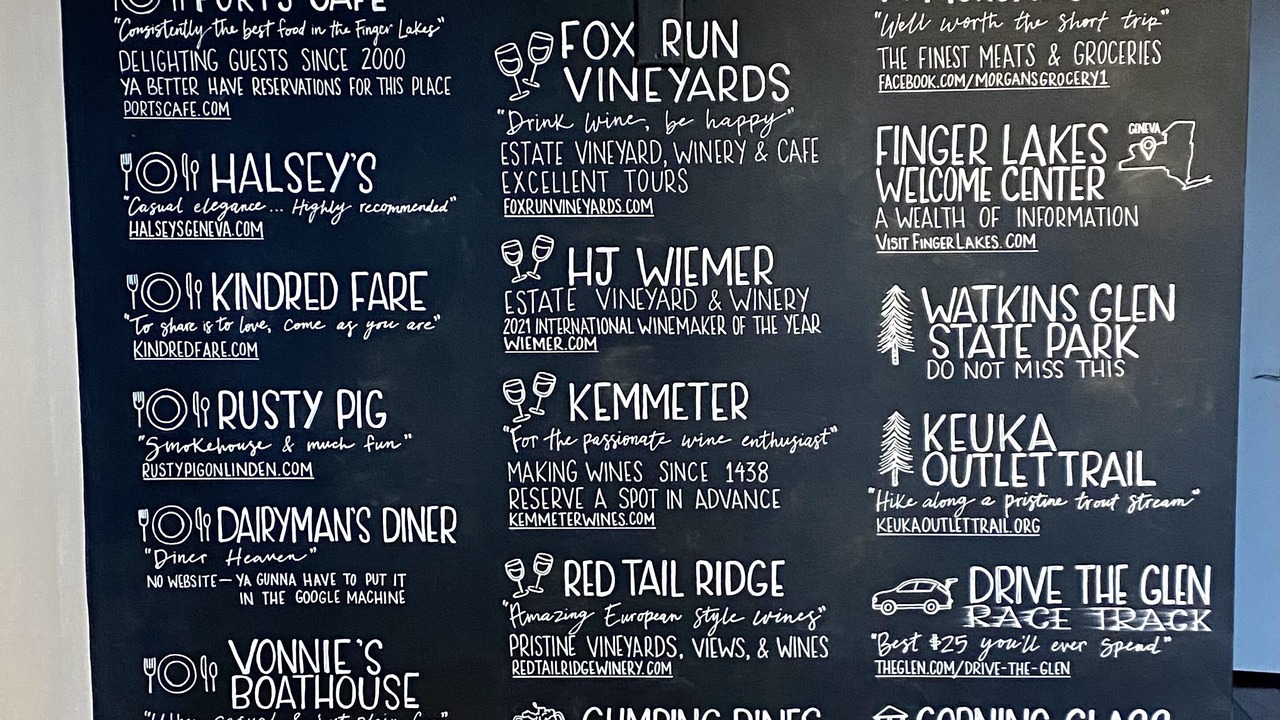 PORTS CAFE
"Consistently the best food in the Finger Lakes"
DELIGHTING GUESTS SINCE 2000
YA BETTER HAVE RESERVATIONS FOR THIS PLACE
PORTSCAFE.COM
HALSEY'S
"Casual elegance... Highly recommended"
HALSEYSGENEVA.COM
KINDRED FARE
"To share is to love, come as you are"
KINDREDFARE.COM
RUSTY PIG
"Smokehouse & much fun"
RUSTYPIGONLINDEN.COM
DAIRYMAN'S DINER
"Diner Heaven"
NO WEBSITE—YA GUNNA HAVE TO PUT IT
IN THE GOOGLE MACHINE
VONNIE'S
BOATHOUSE
FOX RUN
VINEYARDS
"Drink wine, be happy"
ESTATE VINEYARD, WINERY & CAFE
EXCELLENT TOURS
FOXRUNVINEYARDS.COM
HJ WIEMER
ESTATE VINEYARD & WINERY
2021 INTERNATIONAL WINEMAKER OF THE YEAR
WIEMER.COM
KEMMETER
"For the passionate wine enthusiast"
MAKING WINES SINCE 1438
RESERVE A SPOT IN ADVANCE
KEMMETERWINES.COM
RED TAIL RIDGE
"Amazing European style wines"
PRISTINE VINEYARDS, VIEWS, & WINES
REDTAILRIDGEWINERY.COM
"Well worth the short trip"
THE FINEST MEATS & GROCERIES
FACEBOOK.COM/MORGANSGROCERY1
FINGER LAKES
WELCOME CENTER
GENEVA
A WEALTH OF INFORMATION
VISITFINGERLAKES.COM
WATKINS GLEN
STATE PARK
DO NOT MISS THIS
KEUKA
OUTLET TRAIL
"Hike along a pristine trout stream"
KEUKAOUTLETTRAIL.ORG
DRIVE THE GLEN
RACE TRACK
"Best $25 you'll ever spend"
THEGLEN.COM/DRIVE-THE-GLEN
CORNING GLASS